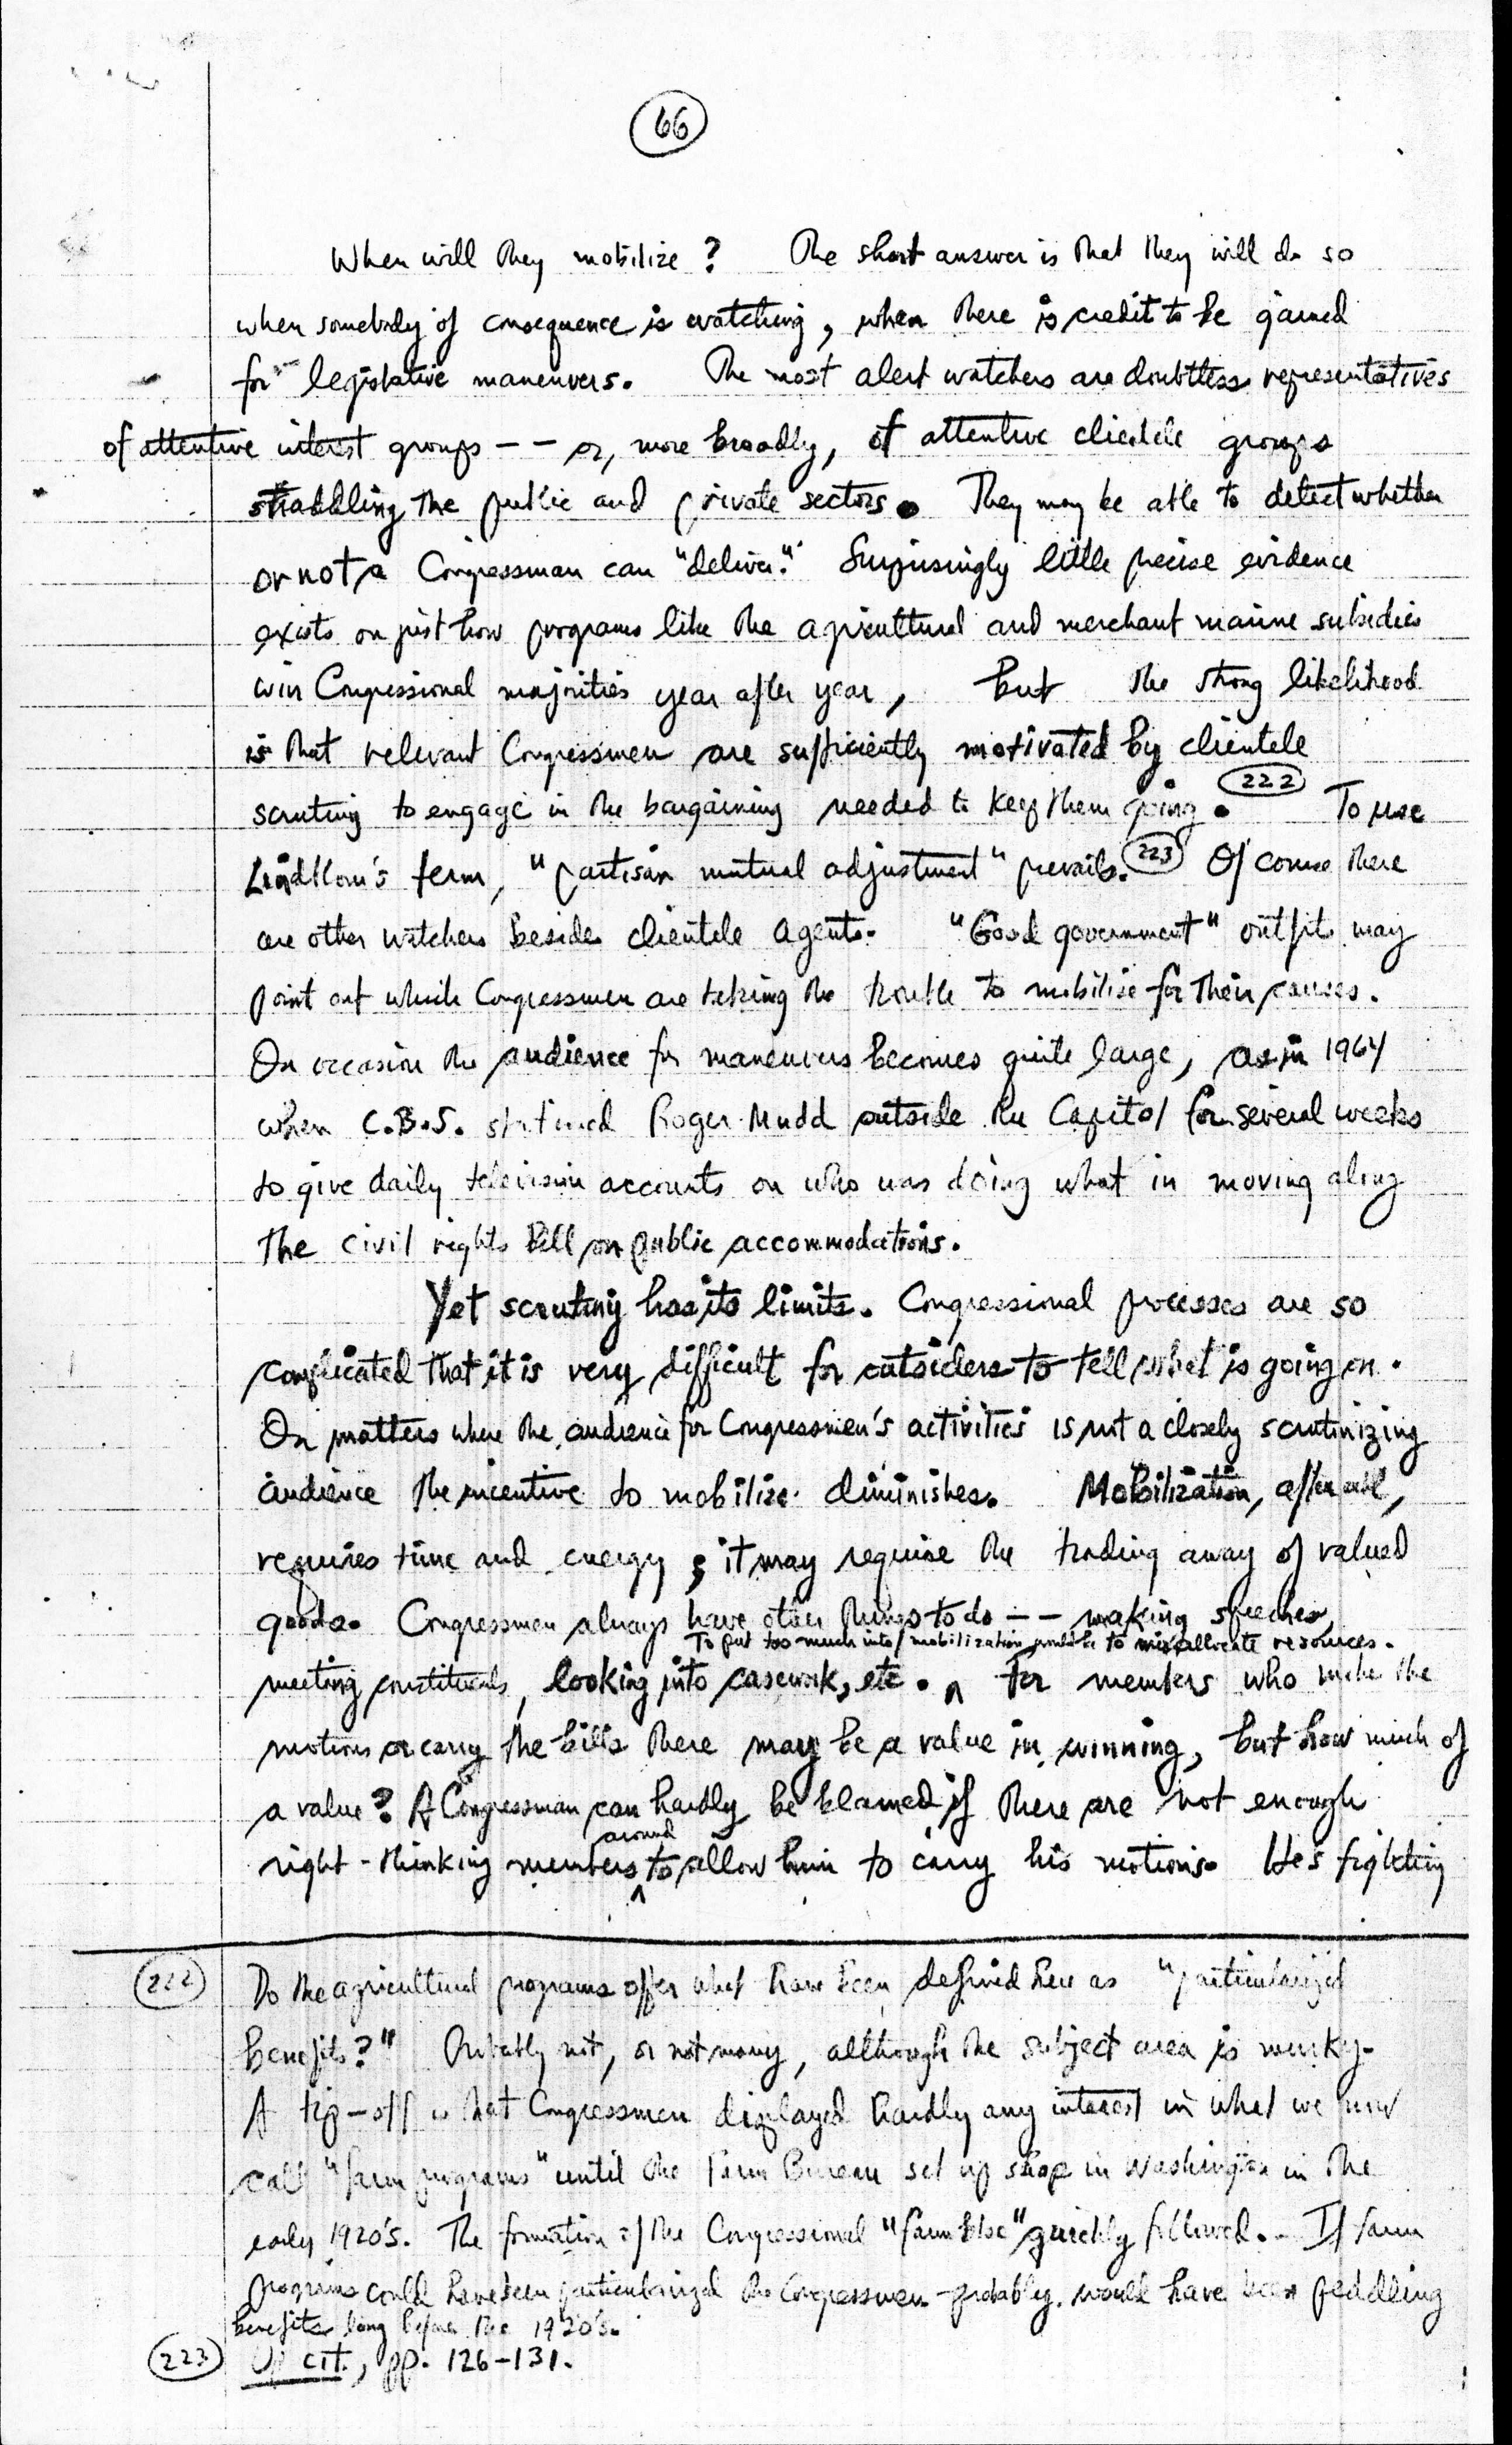 66
When will they mobilize? The short answer is that they will do so
when somebody of consequence is watching, when there is credit to be gained
for legislative maneuvers. The most alert watchers are doubtless representatives
of attentive interest groups -- or, more broadly, of attentive clientele groups
straddling the public and private sectors. They may be able to detect whether
or not a Congressman can "deliver." Surprisingly little precise evidence
exists on just how programs like the agricultural and merchant marine subsidies
win Congressional majorities year after year, but the strong likelihood
is that relevant Congressmen are sufficiently motivated by clientele
scrutiny to engage in the bargaining needed to keep them going. 222 To use
Lindblom's term, "partisan mutual adjustment" prevails. 223 Of course there
are other watchers beside clientele agents. "Good government" outfits may
point out which Congressmen are taking the trouble to mobilize for their causes.
On occasion the audience for maneuvers becomes quite large, as in 1964
when C.B.S. stationed Roger Mudd outside the Capitol for several weeks
to give daily television accounts on who was doing what in moving along
the civil rights bill on public accommodations.
Yet scrutiny has its limits. Congressional processes are so
complicated that it is very difficult for outsiders to tell what is going on.
On matters where the audience for Congressmen's activities is not a closely scrutinizing
audience the incentive to mobilize diminishes. Mobilization, after all,
requires time and energy; it may require the trading away of valued
goods. Congressmen always have other things to do -- making speeches,
To put too much into mobilization would be to misallocate resources.
meeting constituents, looking into casework, etc. ^ For members who make the
motions or carry the bills there may be a value in winning, but how much of
a value? A Congressman can hardly be blamed if there are not enough
around
right-thinking members ^ to allow him to carry his motions. He's fighting
222 Do the agricultural programs offer what have been defined here as "particularized
benefits?" Probably not, or not many, although the subject area is murky.
A tip-off is that Congressmen displayed hardly any interest in what we now
call "farm programs" until the Farm Bureau set up shop in Washington in the
early 1920's. The formation of the Congressional "farm bloc" quickly followed. If farm
programs could have been particularized the Congressmen probably would have been peddling
benefits long before the 1920's.
223 Op cit., pp. 126-131.